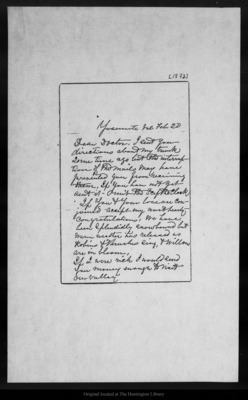 [1872]
Yosemite Val Feb 20
Dear Doctor. I sent you
directions about my trunk
some time ago but the interrup
tion of the mails may have
prevented you from receiving
them. If you have not yet
sent it
If you & your love are con
joined accept my most hearty
Congratulations. We have
been splendidly snowbound but
warm weather has released us
Robins & thrushes sing, & Willows
are in bloom.
If I were rich I would send
you money enough to visit
our valley
Original located at The Huntington Library